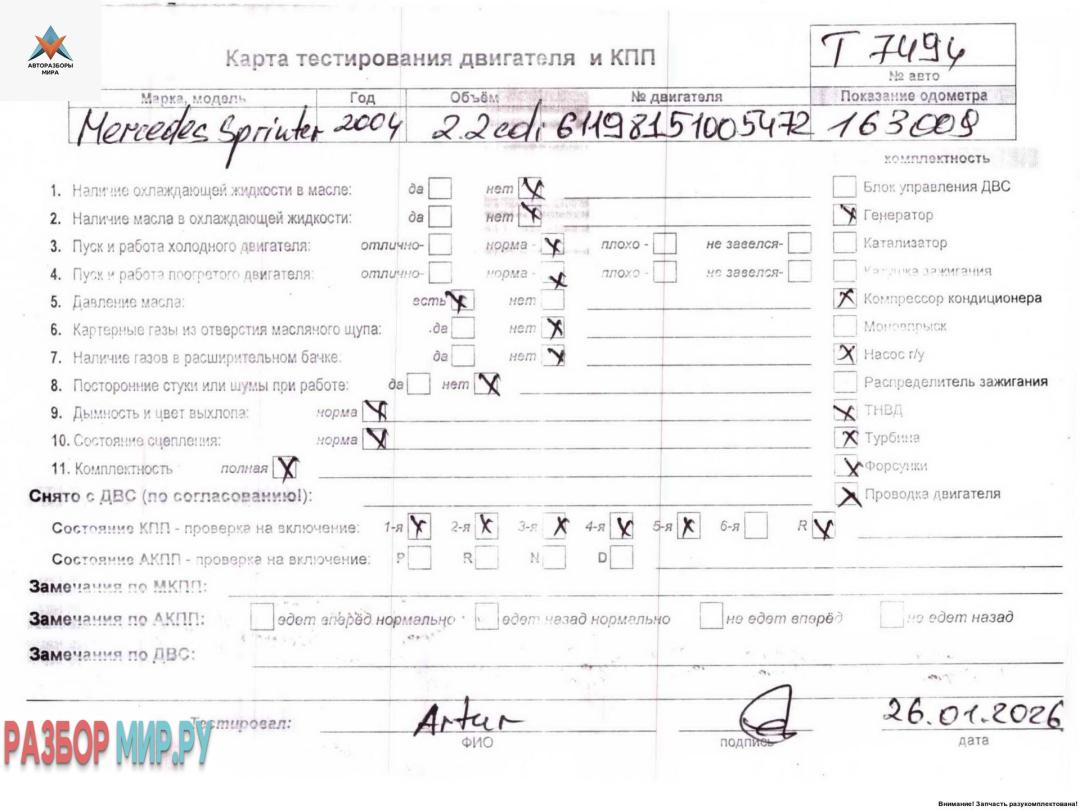 АВТОРАЗБОРЫ
МИРА
Карта тестирования двигателя и КПП
T 7494
№ авто
Марка, модель Год Объём № двигателя Показание одометра
Mercedes Sprinter 2004 2.2cdi 61198151005472 163009
комплектность
1. Наличие охлаждающей жидкости в масле: да нет X
Блок управления ДВС
2. Наличие масла в охлаждающей жидкости: да нет X
X Генератор
3. Пуск и работа холодного двигателя: отлично- норма - X плохо - не завелся-
Катализатор
4. Пуск и работа прогретого двигателя: отлично- норма - X плохо - не завелся-
Катушка зажигания
5. Давление масла: есть X нет
X Компрессор кондиционера
6. Картерные газы из отверстия масляного щупа: да нет X
Моновпрыск
7. Наличие газов в расширительном бачке: да нет X
X Насос г/у
8. Посторонние стуки или шумы при работе: да нет X
Распределитель зажигания
9. Дымность и цвет выхлопа: норма X
X ТНВД
10. Состояние сцепления: норма X
X Турбина
11. Комплектность полная X
X Форсунки
Снято с ДВС (по согласованию!):
X Проводка двигателя
Состояние КПП - проверка на включение: 1-я X 2-я X 3-я X 4-я X 5-я X 6-я R X
Состояние АКПП - проверка на включение: P R N D
Замечания по МКПП:
Замечания по АКПП: едет вперёд нормально едет назад нормально не едет вперёд не едет назад
Замечания по ДВС:
Тестировал: Artur 26.01.2026
ФИО подпись дата
РАЗБОР МИР.РУ
Внимание! Запчасть разукомплектована!